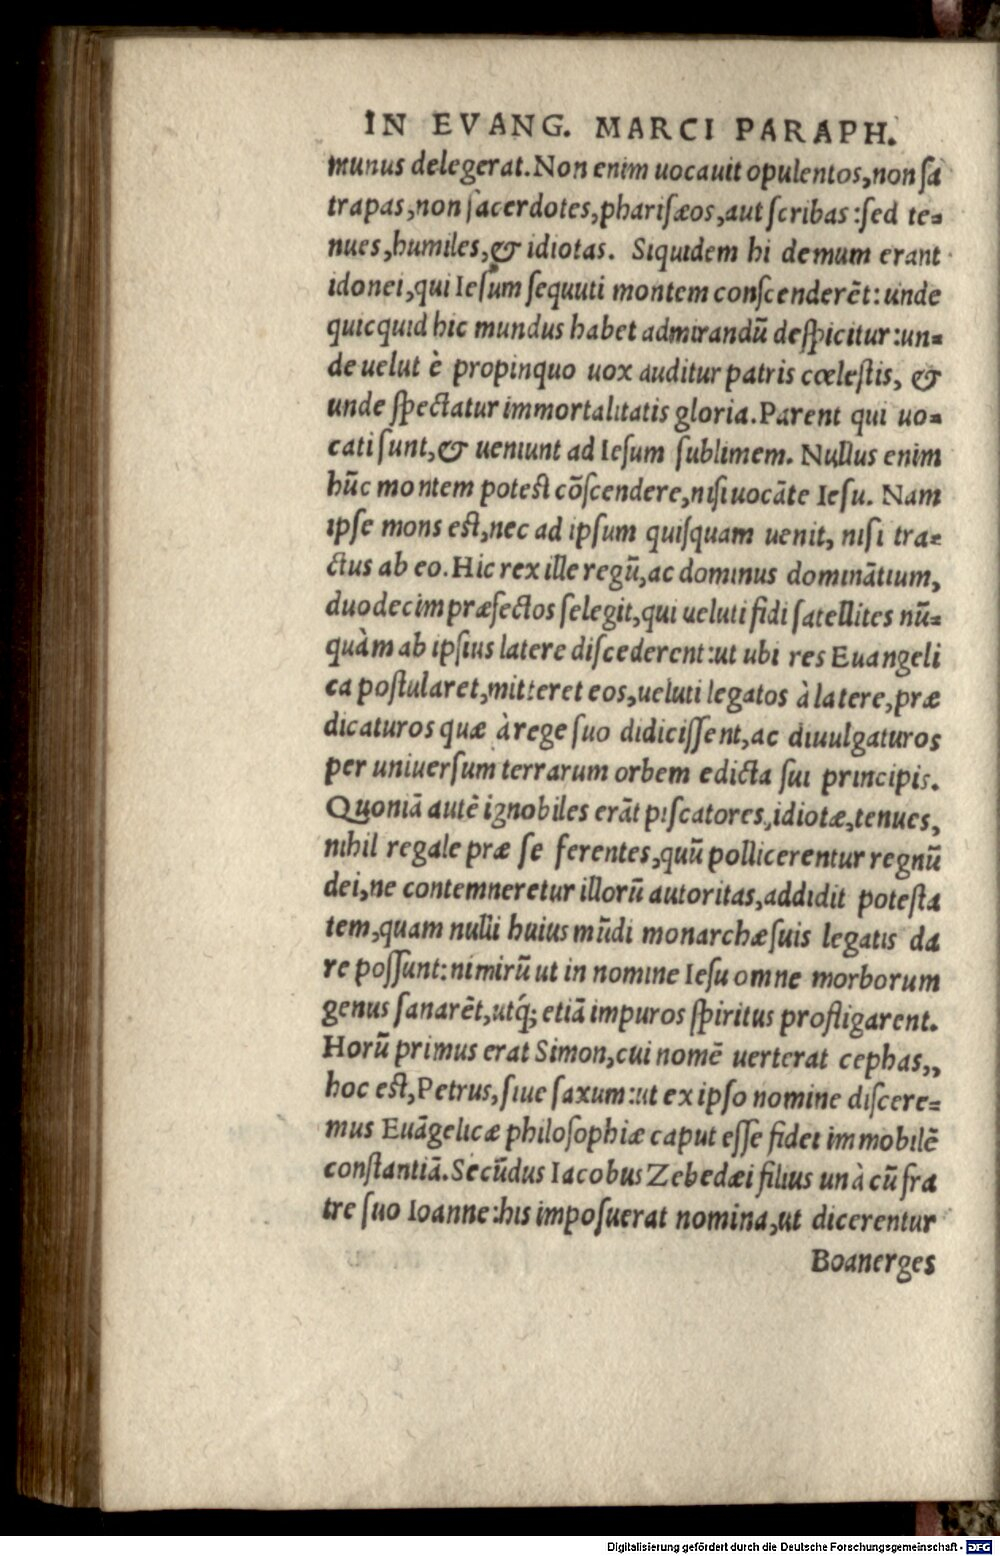 IN EVANG. MARCI PARAPH.
munus delegerat. Non enim uocauit opulentos, non ſa
trapas, non ſacerdotes, phariſæos, aut ſcribas: ſed te=
nues, humiles, & idiotas. Siquidem hi demum erant
idonei, qui Ieſum ſequuti montem conſcenderẽt: unde
quicquid hic mundus habet admirandũ deſpicitur: un=
de uelut è propinquo uox auditur patris cœleſtis, &
unde ſpectatur immortalitatis gloria. Parent qui uo=
cati ſunt, & ueniunt ad Ieſum ſublimem. Nullus enim
hũc montem poteſt cõſcendere, niſi uocãte Ieſu. Nam
ipſe mons eſt, nec ad ipſum quiſquam uenit, niſi tra=
ctus ab eo. Hic rex ille regũ, ac dominus dominãtium,
duodecim præfectos ſelegit, qui ueluti fidi ſatellites nũ=
quàm ab ipſius latere diſcederent: ut ubi res Euangeli
ca poſtularet, mitteret eos, ueluti legatos à latere, præ
dicaturos quæ à rege ſuo didiciſſent, ac diuulgaturos
per uniuerſum terrarum orbem edicta ſui principis.
Quoniã autẽ ignobiles erãt piſcatores, idiotæ, tenues,
nihil regale præ ſe ferentes, quũ pollicerentur regnũ
dei, ne contemneretur illorũ autoritas, addidit poteſta
tem, quam nulli huius mũdi monarchæ ſuis legatis da
re poſſunt: nimirũ ut in nomine Ieſu omne morborum
genus ſanarẽt, utq́; etiã impuros ſpiritus profligarent.
Horũ primus erat Simon, cui nomẽ uerterat cephas,,
hoc eſt, Petrus, ſiue ſaxum: ut ex ipſo nomine diſcere=
mus Euãgelicæ philoſophiæ caput eſſe fidei immobilẽ
conſtantiã. Secũdus Iacobus Zebedæi filius unà cũ fra
tre ſuo Ioanne: his impoſuerat nomina, ut dicerentur
Boanerges
Digitalisierung gefördert durch die Deutsche Forschungsgemeinschaft - DFG